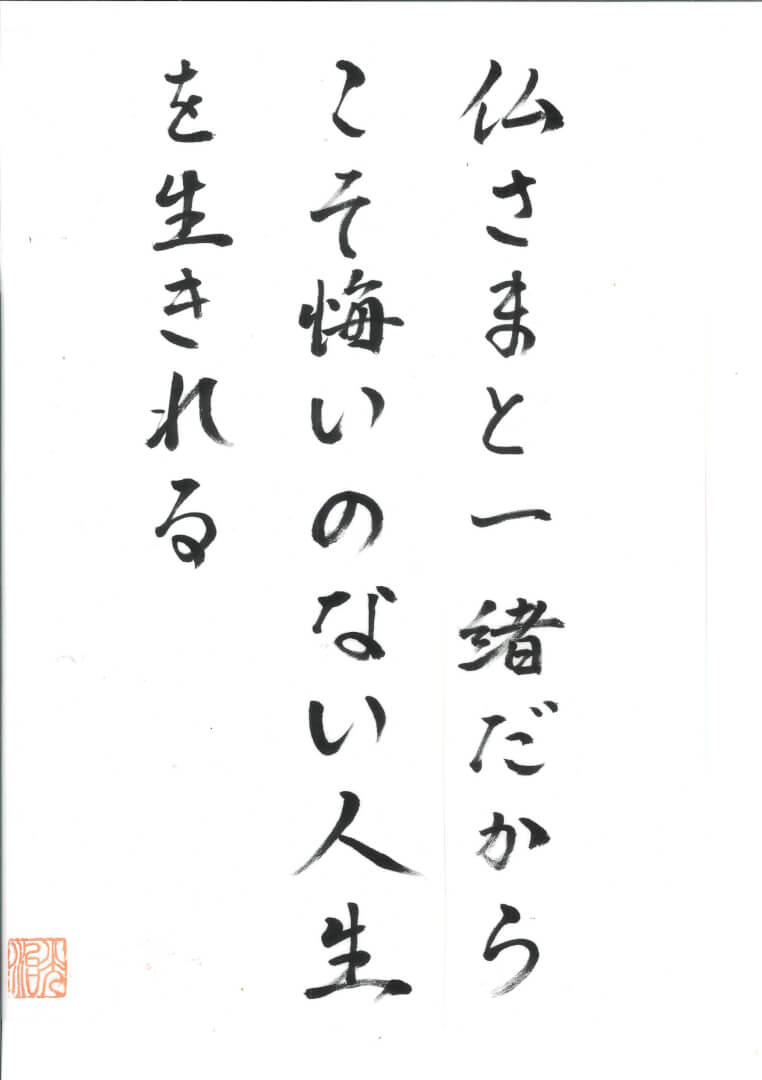 仏さまと一緒だから
こそ悔いのない人生
を生きれる